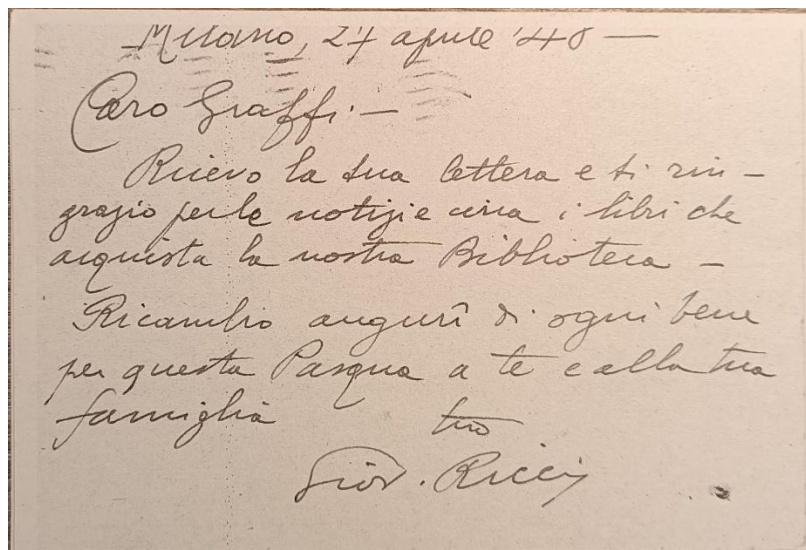 Milano, 27 aprile '48 —
Caro Graffi. —
Ricevo la tua lettera e ti rin-
grazio per le notizie circa i libri che
acquista la nostra Biblioteca —
Ricambio augurî di ogni bene
per questa Pasqua a te e alla tua
famiglia tuo
Giov. Ricci